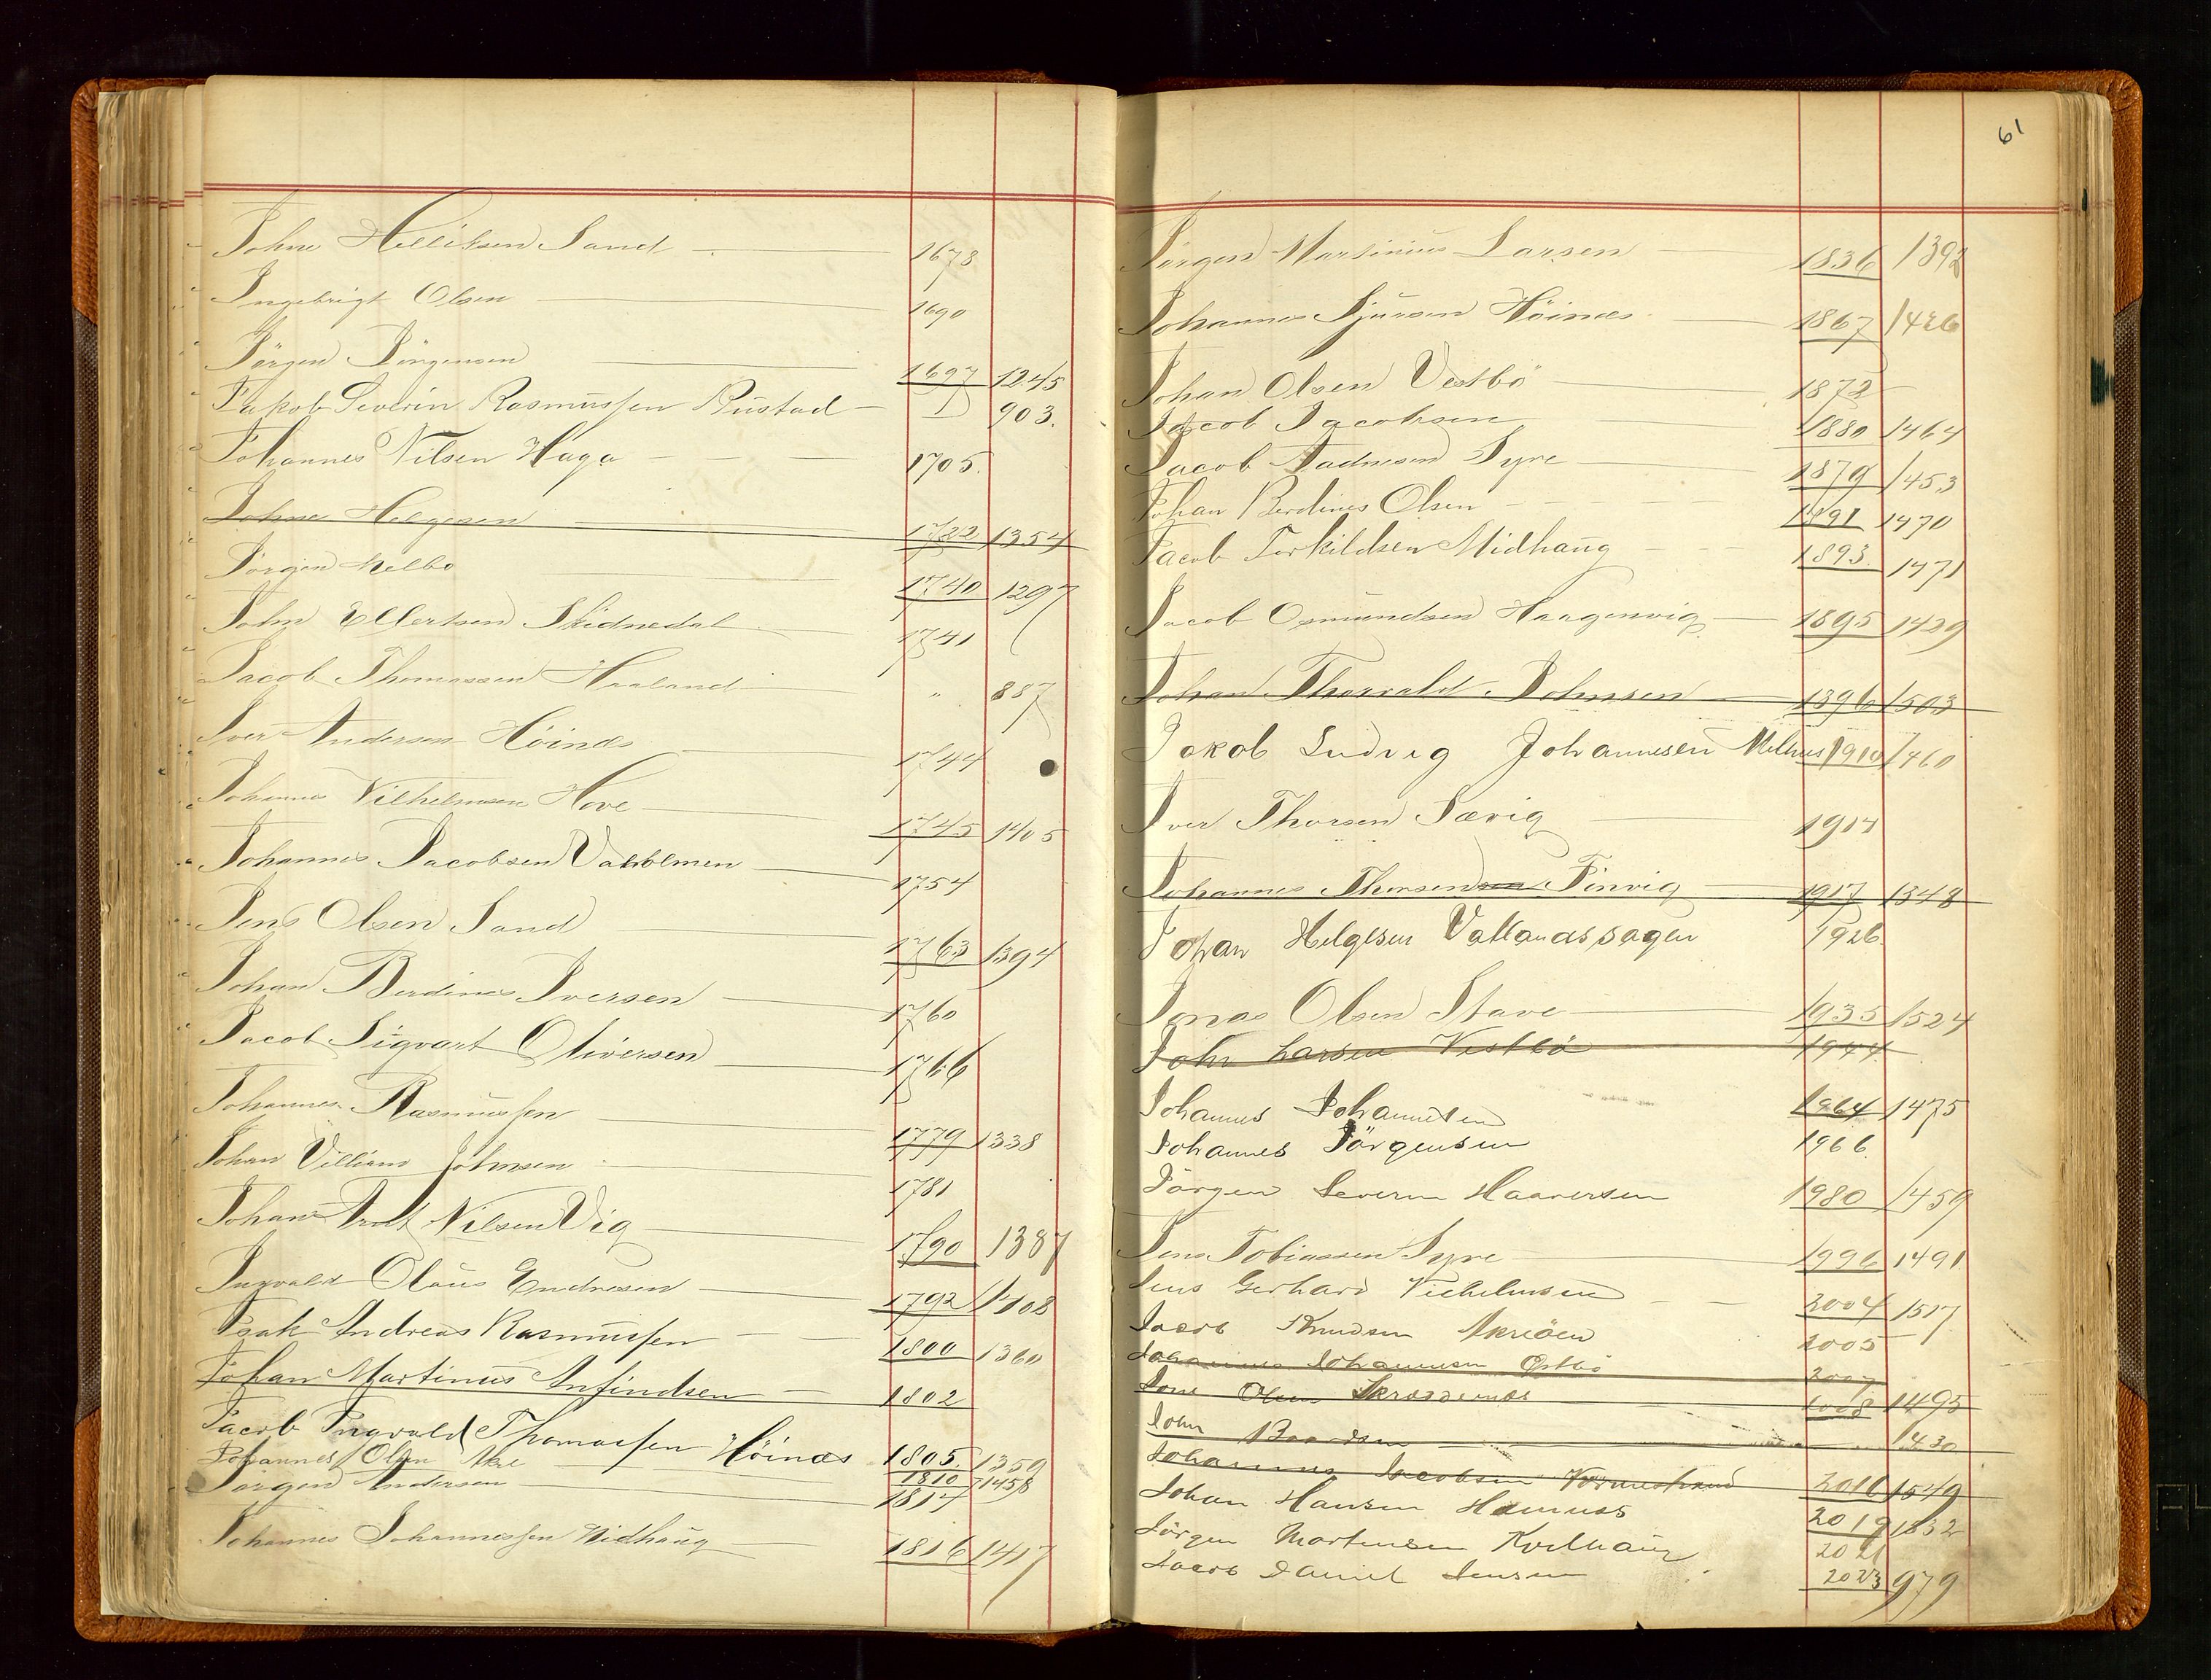 Johne Helliksen Sand 1678
Ingebrigt Olsen 1690
Jörgen Jörgensen 1697 1245
Jakob Severin Rasmussen Rustad 903.
Johannes Nilsen Haga 1705.
Johne Helgesen 1722 1354
Jörgen Melbo 1740 1297
John Ellertsen Skidnedal 1741
Jacob Thomassen Haaland " 887
Iver Andersen Höinæs 1744
Johannes Vilhelmsen Hove 1745 1405
Johannes Jacobsen 1754
Jens Olsen Sand 1763 1394
Johan Berdines Iversen 1760
Jacob Sigvart Oliversen 1766
Johannes Rasmussen 1779 1338
Johan Villiam Johnsen 1781
Johan Arnt Nilsen Vig 1790 1387
Ingvald Olaus Endresen 1792 1408
Isak Andreas Rasmussen 1800 1360
Johan Martinus Anfindsen 1802
Jacob Ingvald Thomassen Höinæs 1805. 1359
Johannes Olsen Akre 1810 1458
Jörgen Andersen 1814
Johannes Johannessen Midhaug 1816 1417
61
Jörgen Martinius Larsen 1836 1392
Johannes Sjursen Höinæs 1867 1426
Johan Olsen Vestbö 1872
Jacob Jacobsen 1880 1464
Jacob Aadnesen Syre 1879 1453
Johan Berdines Olsen 1891 1470
Jacob Torkildsen Midhaug 1893 1471
Jacob Osmundsen Haagenvig 1895 1429
Johan Thorvald Johnsen 1896 1503
Jakob Ludvig Johannesen Melhus 1910 1460
Iver Thorsen Sævig 1914
Johannes Thorsen 1917 1348
Johan Helgesen Vallandsdagen 1926.
Jonas Olsen Stave 1935 1524
John Larsen Vestbö 1944.
Johannes Johannesen 1964 1475
Johannes Jörgensen 1966.
Jörgen Severin Haaversen 1980 1459
Jens Tobiassen Syre 1996 1491
Jens Gerhard Vielhelmsen 2004 1517
Jacob Knudsen Akreöen 2005
Johannes Johannesen Östbö 2007
Jone Olsen 2008 1495
John Baardsen 1430
Johannes Jacobsen Vormestrand 2016 1549
Johan Hansen 2019 1532
Jörgen Mortensen Kvilhaug 2021
Jacob Daniel Jensen 2023 979